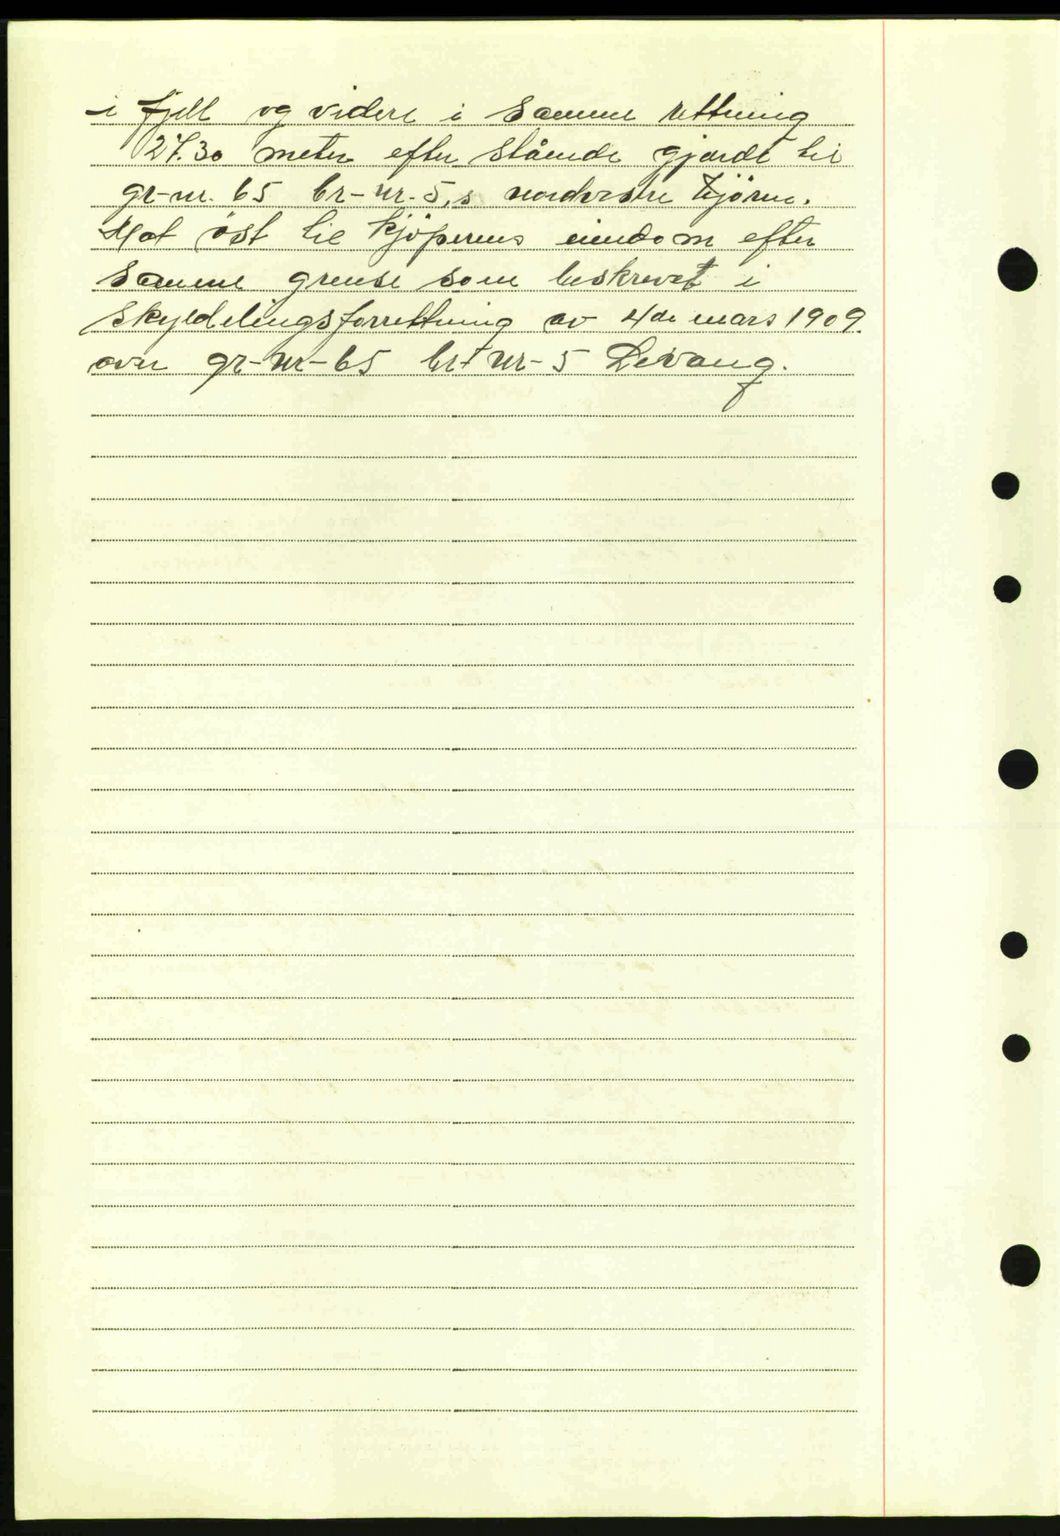 i fjell og videre i samme rettning
27.30 meter efter stående gjærde til
gr-nr. 65 br-nr. 5,s nordvestre hjørne.
Mot öst til kjöperens eiendom efter
samme grense som beskrevet i
skylddelingsforrettning av 4de mars 1909.
over gr-nr-65 br-nr-5 Levang.